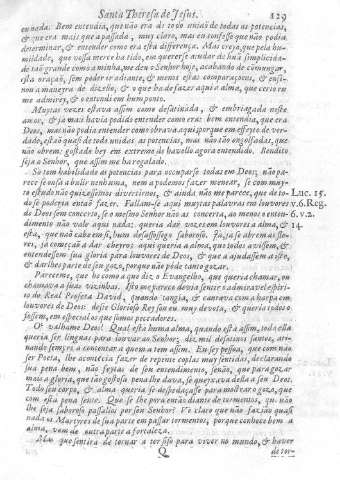 Santa Theresa de Jesus. 129
ennada. Bem entendia, que não era de todo uniaõ de todas as potencias,
& que era mais que a passada, muy claro, mas eu confesso que não podia
determinar, & entender como era esta differença. Mas creyo que pela hu-
mildade, que vossa merce ha tido, em quererse ajudar de huã simplicida-
de taõ grande como a minha, me deu o Senhor hoje, acabando de commungar,
esta oração, sem poder ir adiante, & me pos estas comparaçoens, & ensi-
nou a maneyra de dizello, & o que ha de fazer aqui a alma, que certo eu
me admirey, & o entendi em hum ponto.
Muytas vezes estava assim como desatinada, & embriagada neste
amor, & já mais havia podido entender como era: bem entendia, que era
Deos, mas não podia entender como obrava aqui; porque em effeyto de ver-
dade, estaõ quasi de todo unidas as potencias, mas não taõ engolfadas, que
não obrem: gostado hey em extremo de havello agora entendido. Bendito
seja o Senhor, que assim me ha regalado.
Só tem habilidade as potencias para occuparse todas em Deos; não pa-
rece se ousa a bulir nenhuma, nem a podemos fazer menear, se com muy-
to estudo não quizessemos divertirnos, & ainda não me parece, que de to-
do se poderia entaõ fazer. Fallam-se aqui muytas palavras em louvores
de Deos sem concerto, se o mesmo Senhor não as concerta, ao menos o enten-
dimento não vale aqui nada: queria dar vozes em louvores a alma, &
está, que não cabe em si, hum desassossego saboroso. Já, já se abrem as flo-
res, já começaõ a dar cheyro: aqui queria a alma, que todos a vissem, &
entendessem sua gloria para louvores de Deos, & que a ajudassem a isto,
& darlhes parte de seu gozo, porque não póde tanto gozar.
Luc. 15.
v. 6. Reg.
6. v. 2.
14.
Pareceme, que he como a que diz o Evangelho, que queria chamar, ou
chamava a suas vizinhas. Isto me parece devia sentir o admiravel espiri-
to do Real Profeta David, quando tangia, & cantava com a harpa em
louvores de Deos: deste Glorioso Rey sou eu muy devota, & queria todos o
fossem, em especial os que somos peccadores.
O' valhame Deos! Qual está huma alma, quando está assim, toda ella
queria ser linguas para louvar ao Senhor; diz mil desatinos santos, ati-
nando sempre a contentar a quem a tem assim. Eu sey pessoa, que com não
ser Poeta, lhe acontecia fazer de repente coplas muy sentidas, declarando
sua pena bem, não feytas de seu entendimento, senão, que para gozar
mais a gloria, que taõ gostosa pena lhe dava, se queyxava della a seu Deos.
Todo seu corpo, & alma queria se despedaçasse para mostrar o gozo, que
com esta pena sente. Que se lhe porá entaõ diante de tormentos, que não
lhe seja saboroso passallos por seu Senhor? Vè claro que não faziaõ quasi
nada os Martyres de sua parte em passar tormentos, porque conhece bem a
alma, vem de outra parte a fortaleza.
Mas que sentirá de tornar a ter siso para viver no mundo, & haver
Q de tor-